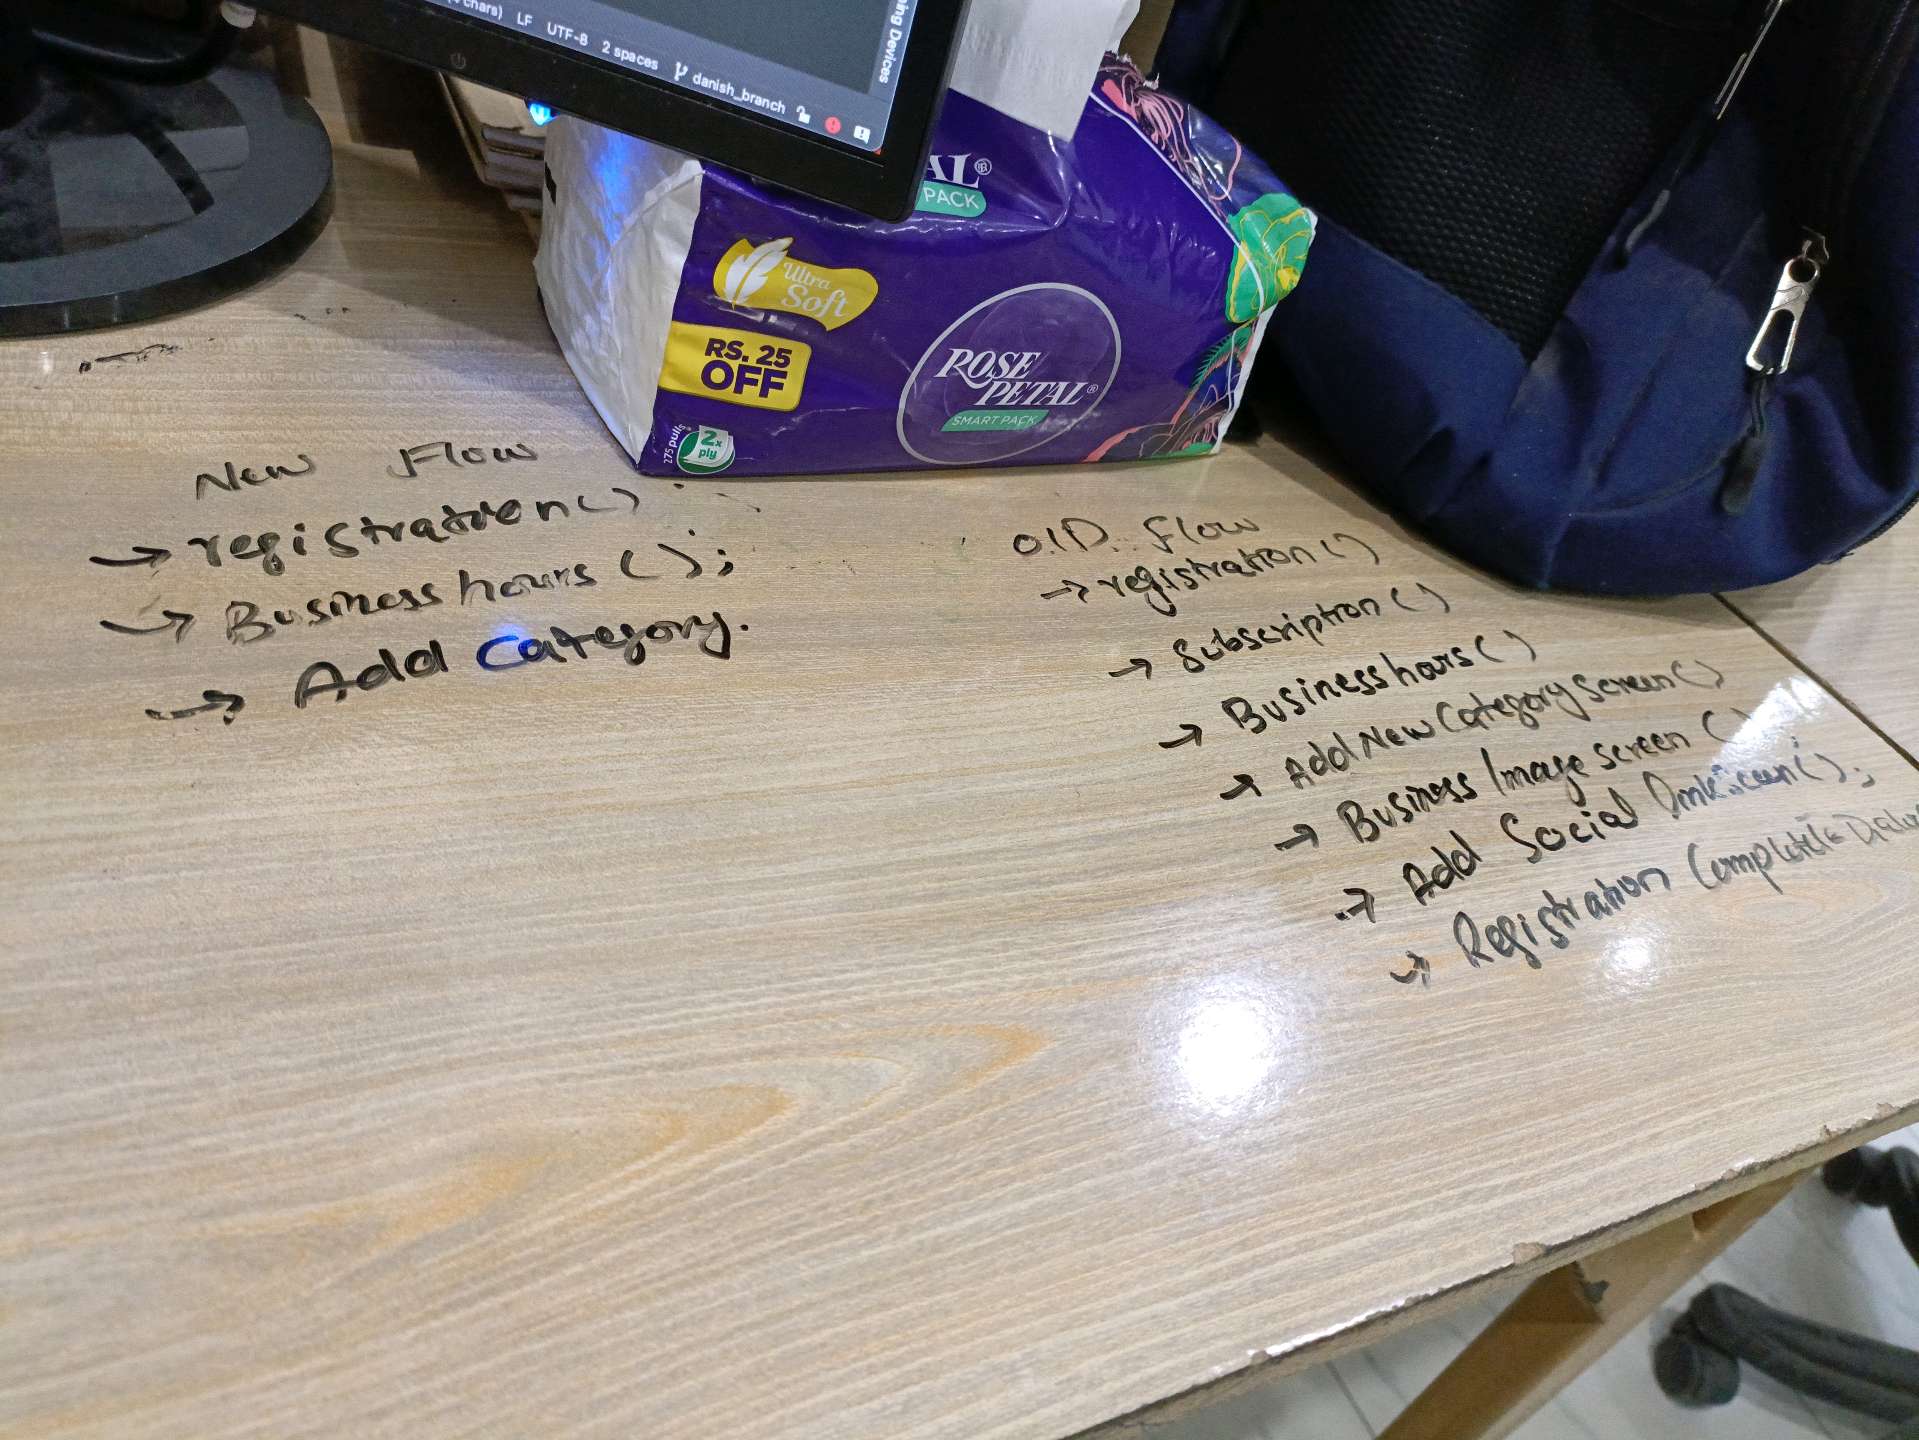 chars) LF UTF-8 2 spaces danish_branch
ing Devices
AL®
PACK
Ultra
Soft
RS. 25
OFF
ROSE
PETAL®
SMART PACK
275 pulls
2x
ply
New Flow
→ registration()
→ Business hours ();
→ Add Category.
O.l.D. Flow
→ registration()
→ Subscription()
→ Business hours()
→ Add New Category Screen()
→ Business Image screen ()
→ Add Social link Screen();
→ Registration Complete Dialo